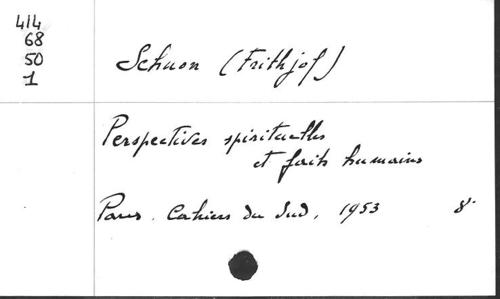 414
68
50
1
Schuon (Frithjof)
Perspectives spirituelles
et faits humains
Paris. Cahiers du Sud, 1953 8°